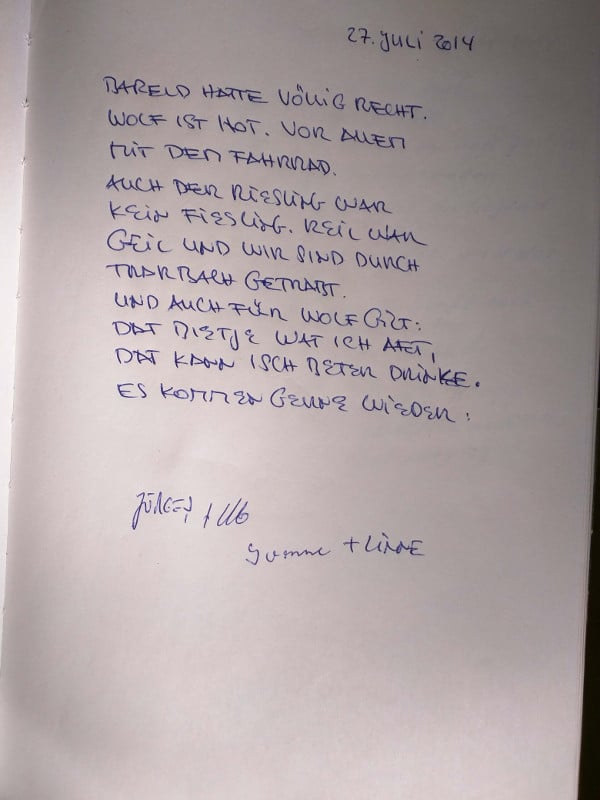 27. JULI 2014
BARELD HATTE VÖLLIG RECHT.
WOLF IST HOT. VOR ALLEM
MIT DEM FAHRRAD.
AUCH DER RIESLING WAR
KEIN FIESLING. REIL WAR
GEIL UND WIR SIND DURCH
TRARBACH GETRABT.
UND AUCH FÜR WOLF GILT:
DAT BIETJE WAT ICH AET,
DAT KANN ISCH BETER DRINKE.
ES KOMMEN GERNE WIEDER:
JÜRGEN + Ulb
Yvonne + LINNE